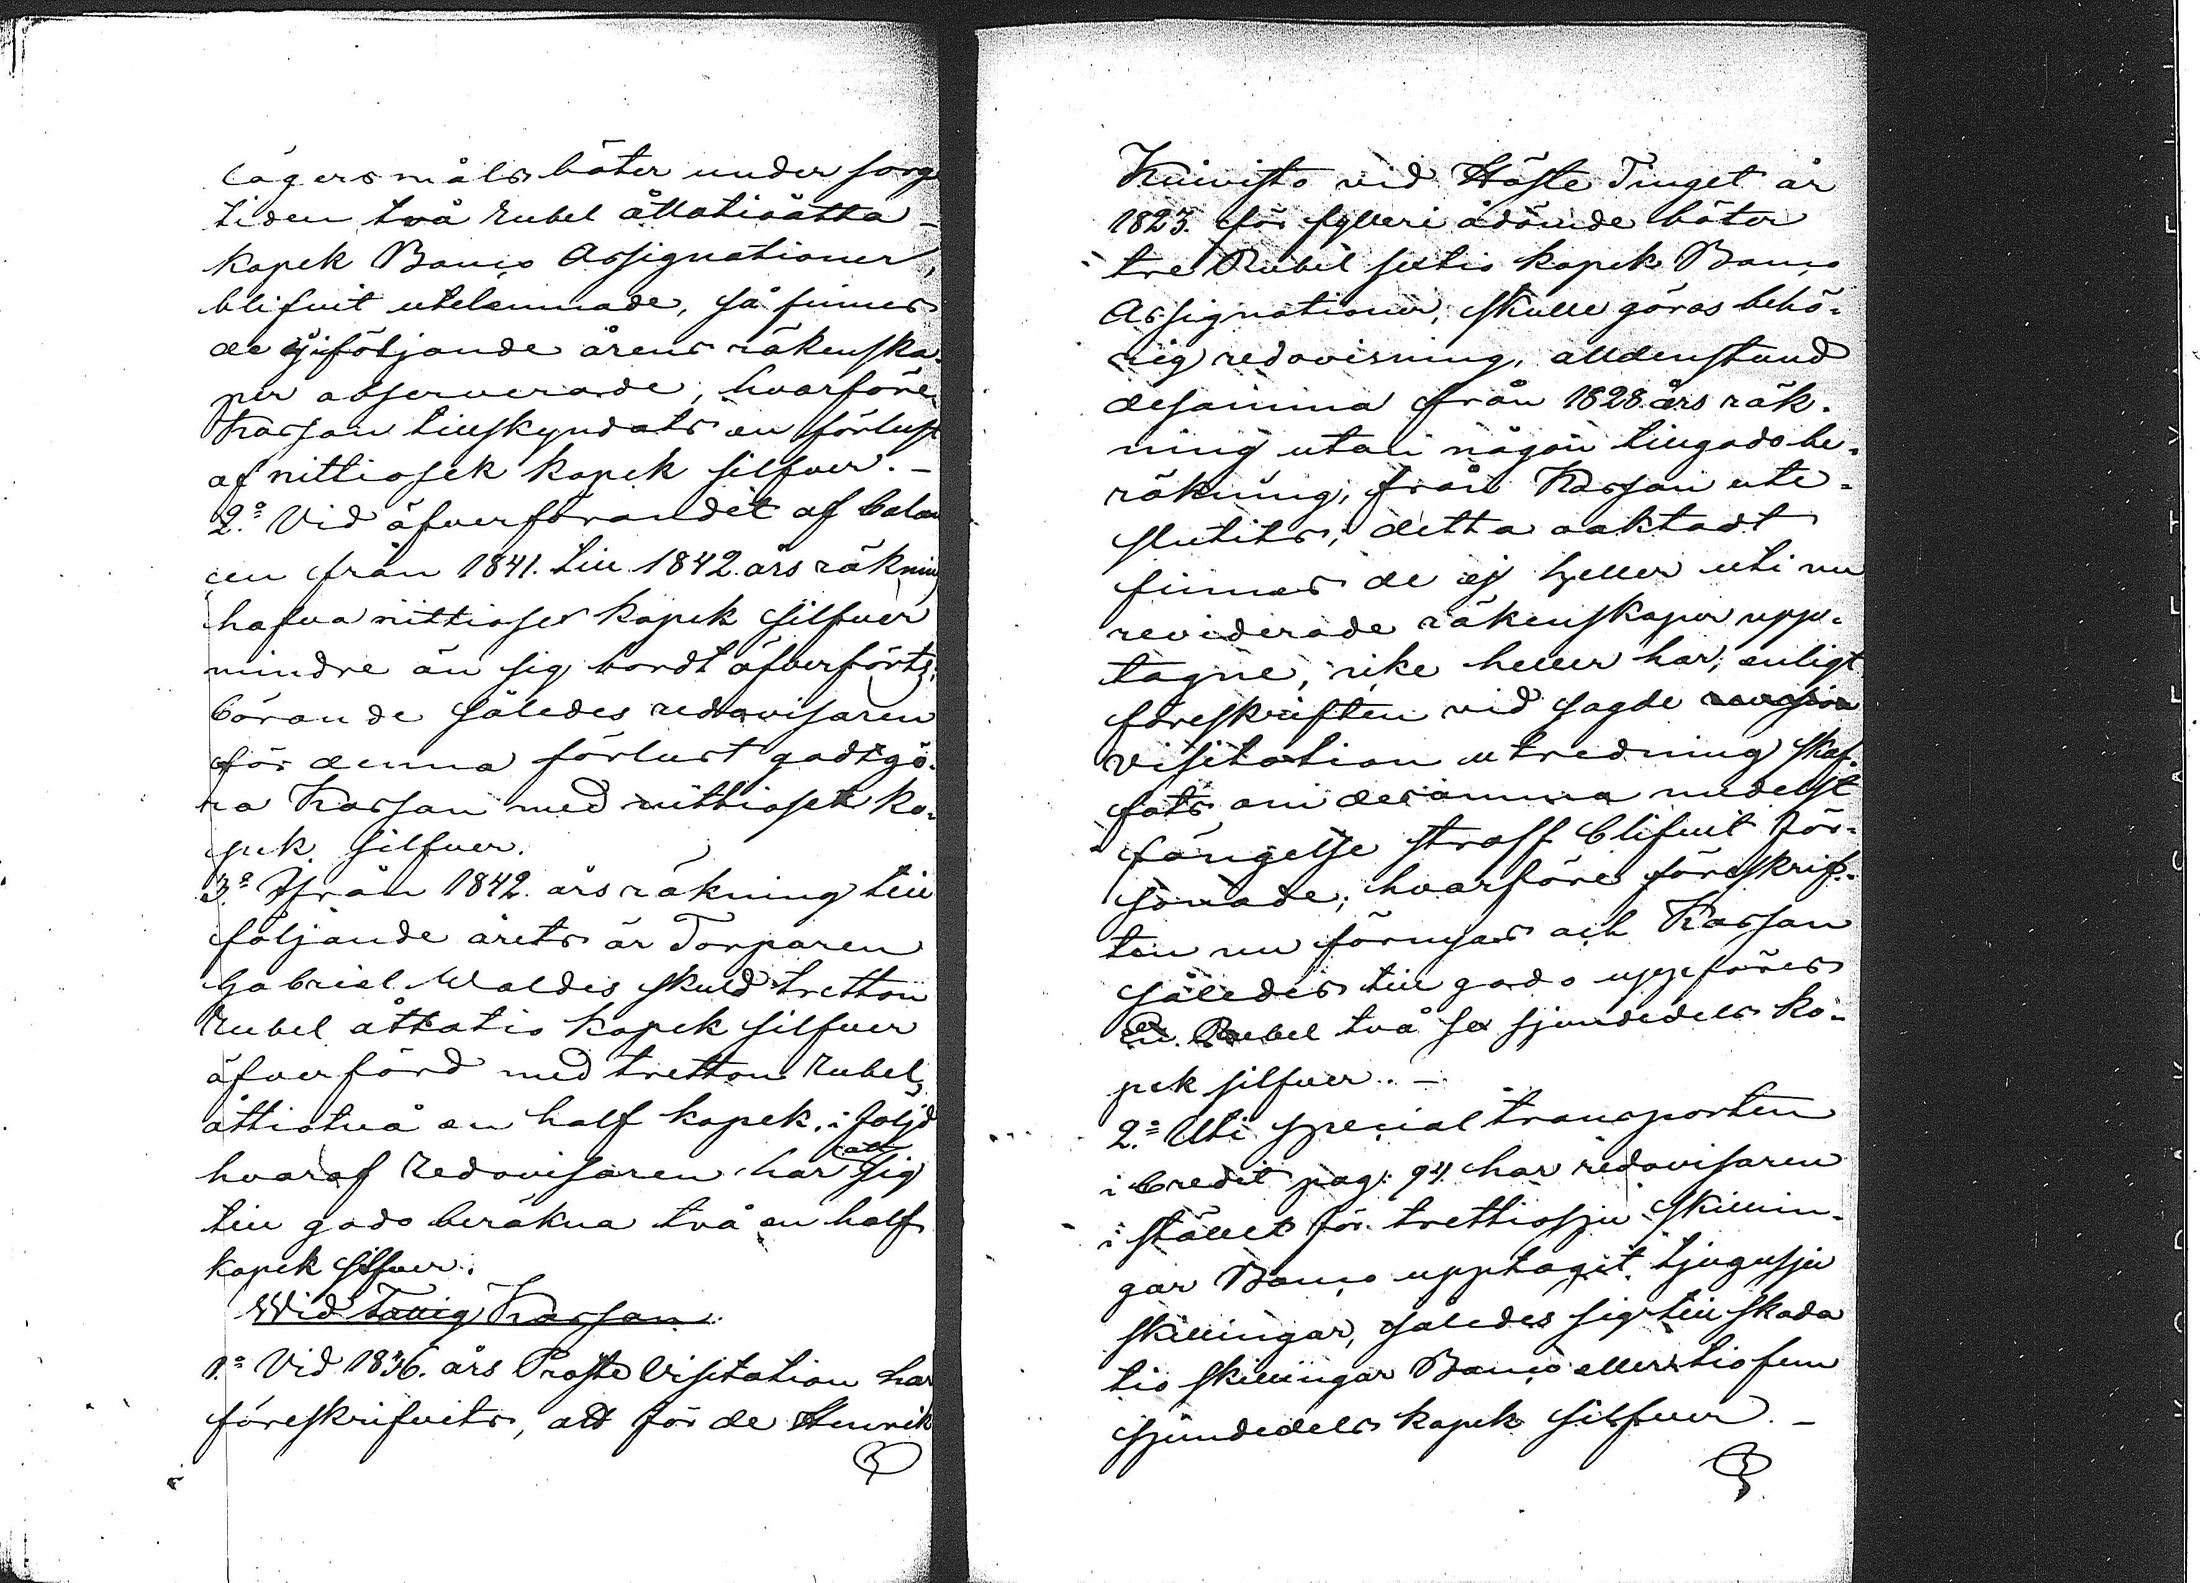 lägersmåls böter under sorg
tiden två rubel åttatioåtta
kopek Banco Assignationer,
blifvit utelemnade, så finnes
de ej i följande årens räkenska-
per observerade, hvarföre
Kassan tillskyndats en förlust
af nittiosex kopek silfver. –
2:o Vid öfverförandet af balan
cen från 1841. till 1842. års räkning
hafva nittiosex kopek silfver
mindre än sig bordt öfverförts;
börande således redovisaren
för denna förlust godtgö-
ra Kassan med nittiosex ko-
pek silfver.
3:o Ifrån 1842. års räkning till
följande årets är Torparen
Gabriel Waldis skuld tretton
rubel åttatio kopek silfver
öfverförd med tretton rubel,
åttiotvå en half kopek, i följd
hvaraf redovisaren har att sig
till godo beräkna två en half
kopek silfver.
Wid Fattig Kassan.
1:o Vid 1836. års Prosts Visitation har
föreskrifvits, att för de Henrik
Kuivisto vid Höste Tinget år
1823. för fylleri ådömde böter
tre Rubel sextio kopek Banco
Assignationer, skulle göras behö-
rig redovisning, alldenstund
desamma från 1828 års räk-
ning utan någon tillgodo be-
räkning, från Kassan ute-
slutits; detta oaktadt
finnas de ej heller uti nu
reviderade räkenskaper upp-
tagne, icke heller har, enligt
föreskriften vid sagde
visitation utredning skaf-
fats om desamma medelst
fängelse straff blifvit för-
sonade; hvarföre föreskrif-
ten nu förnyas och Kassan
således till godo uppföres
En Rubel två sex sjundedels ko-
pek silfver. –
2:o Uti special transporten
i Credit pag: 94. har redovisaren
i stället för trettiosju skillin-
gar Banco upptagit tjugusju
skillingar, således sig till skada
tio skillingar Banco eller tio fem
sjundedels kopek silfver. –